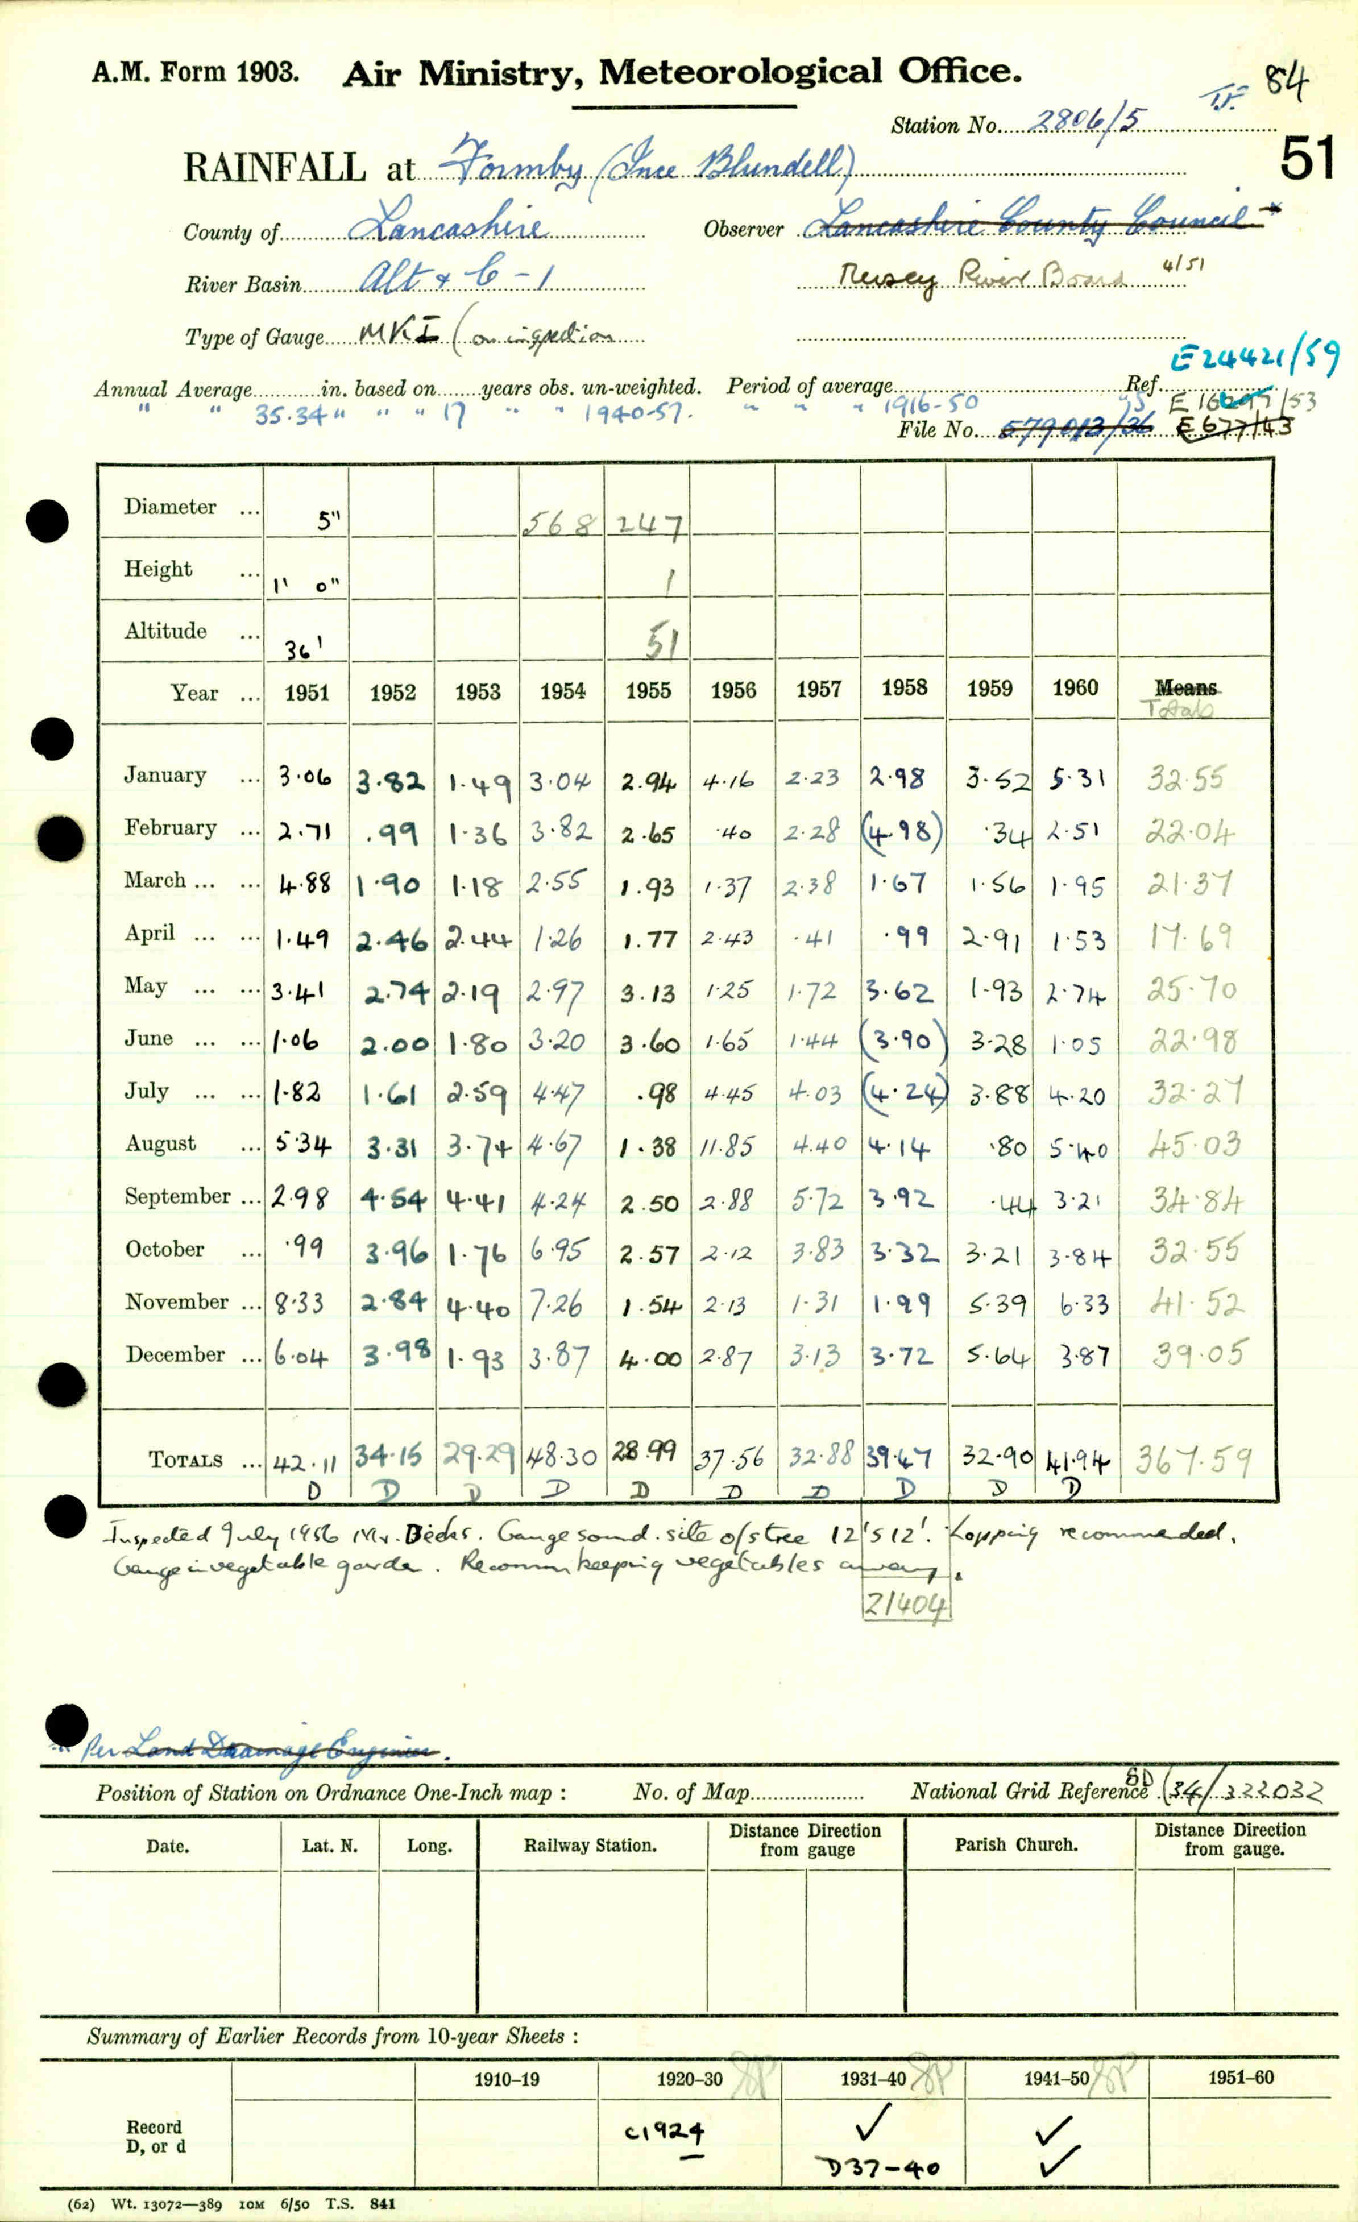 A.M. Form 1903. Air Ministry, Meteorological Office. 84
Station No. 2806/5
51
RAINFALL at Formby (Ince Blundell)
County of Lancashire Observer Lancashire County Council *
River Basin Alt & C - 1 Mersey River Board 4/51
Type of Gauge MKI (on inspection
E24421/59
Annual Average in. based on years obs. un-weighted. Period of average Ref.
" " 35.34 " " " 17 " " 1940-57. " " " 1916-50
File No. 579013/36 E677/43
Diameter ... 5" 568 247
Height ... 1' 0" 1
Altitude ... 36' 51
Year ... 1951 1952 1953 1954 1955 1956 1957 1958 1959 1960 Means
Totals
January ... 3.06 3.82 1.49 3.04 2.94 4.16 2.23 2.98 3.52 5.31 32.55
February ... 2.71 .99 1.36 3.82 2.65 .40 2.28 (4.98) .34 2.51 22.04
March ... ... 4.88 1.90 1.18 2.55 1.93 1.37 2.38 1.67 1.56 1.95 21.37
April ... ... 1.49 2.46 2.44 1.26 1.77 2.43 .41 .99 2.91 1.53 17.69
May ... ... 3.41 2.74 2.19 2.97 3.13 1.25 1.72 3.62 1.93 2.74 25.70
June ... ... 1.06 2.00 1.80 3.20 3.60 1.65 1.44 (3.90) 3.28 1.05 22.98
July ... ... 1.82 1.61 2.59 4.47 .98 4.45 4.03 (4.24) 3.88 4.20 32.27
August ... 5.34 3.31 3.74 4.67 1.38 11.85 4.40 4.14 .80 5.40 45.03
September ... 2.98 4.54 4.41 4.24 2.50 2.88 5.72 3.92 .44 3.21 34.84
October ... .99 3.96 1.76 6.95 2.57 2.12 3.83 3.32 3.21 3.84 32.55
November ... 8.33 2.84 4.40 7.26 1.54 2.13 1.31 1.99 5.39 6.33 41.52
December ... 6.04 3.98 1.93 3.87 4.00 2.87 3.13 3.72 5.64 3.87 39.05
TOTALS ... 42.11 34.15 29.29 48.30 28.99 37.56 32.88 39.47 32.90 41.94 367.59
D D D D D D D D D D
Inspected July 1956 Mr. Gauge sound. site o/s tree 12' S 12'. Lopping recommended.
Gauge in vegetable garden. Recomm keeping vegetables away.
21404
* Per Land Drainage Engineer.
Position of Station on Ordnance One-Inch map : No. of Map National Grid Reference SD (34/322032
Date. Lat. N. Long. Railway Station. Distance from gauge Direction Parish Church. Distance Direction from gauge.
Summary of Earlier Records from 10-year Sheets :
1910–19 1920–30 1931–40 1941–50 1951–60
Record c1924 ✓ ✓
D, or d D37-40 ✓
(62) Wt. 13072—389 10M 6/50 T.S. 841